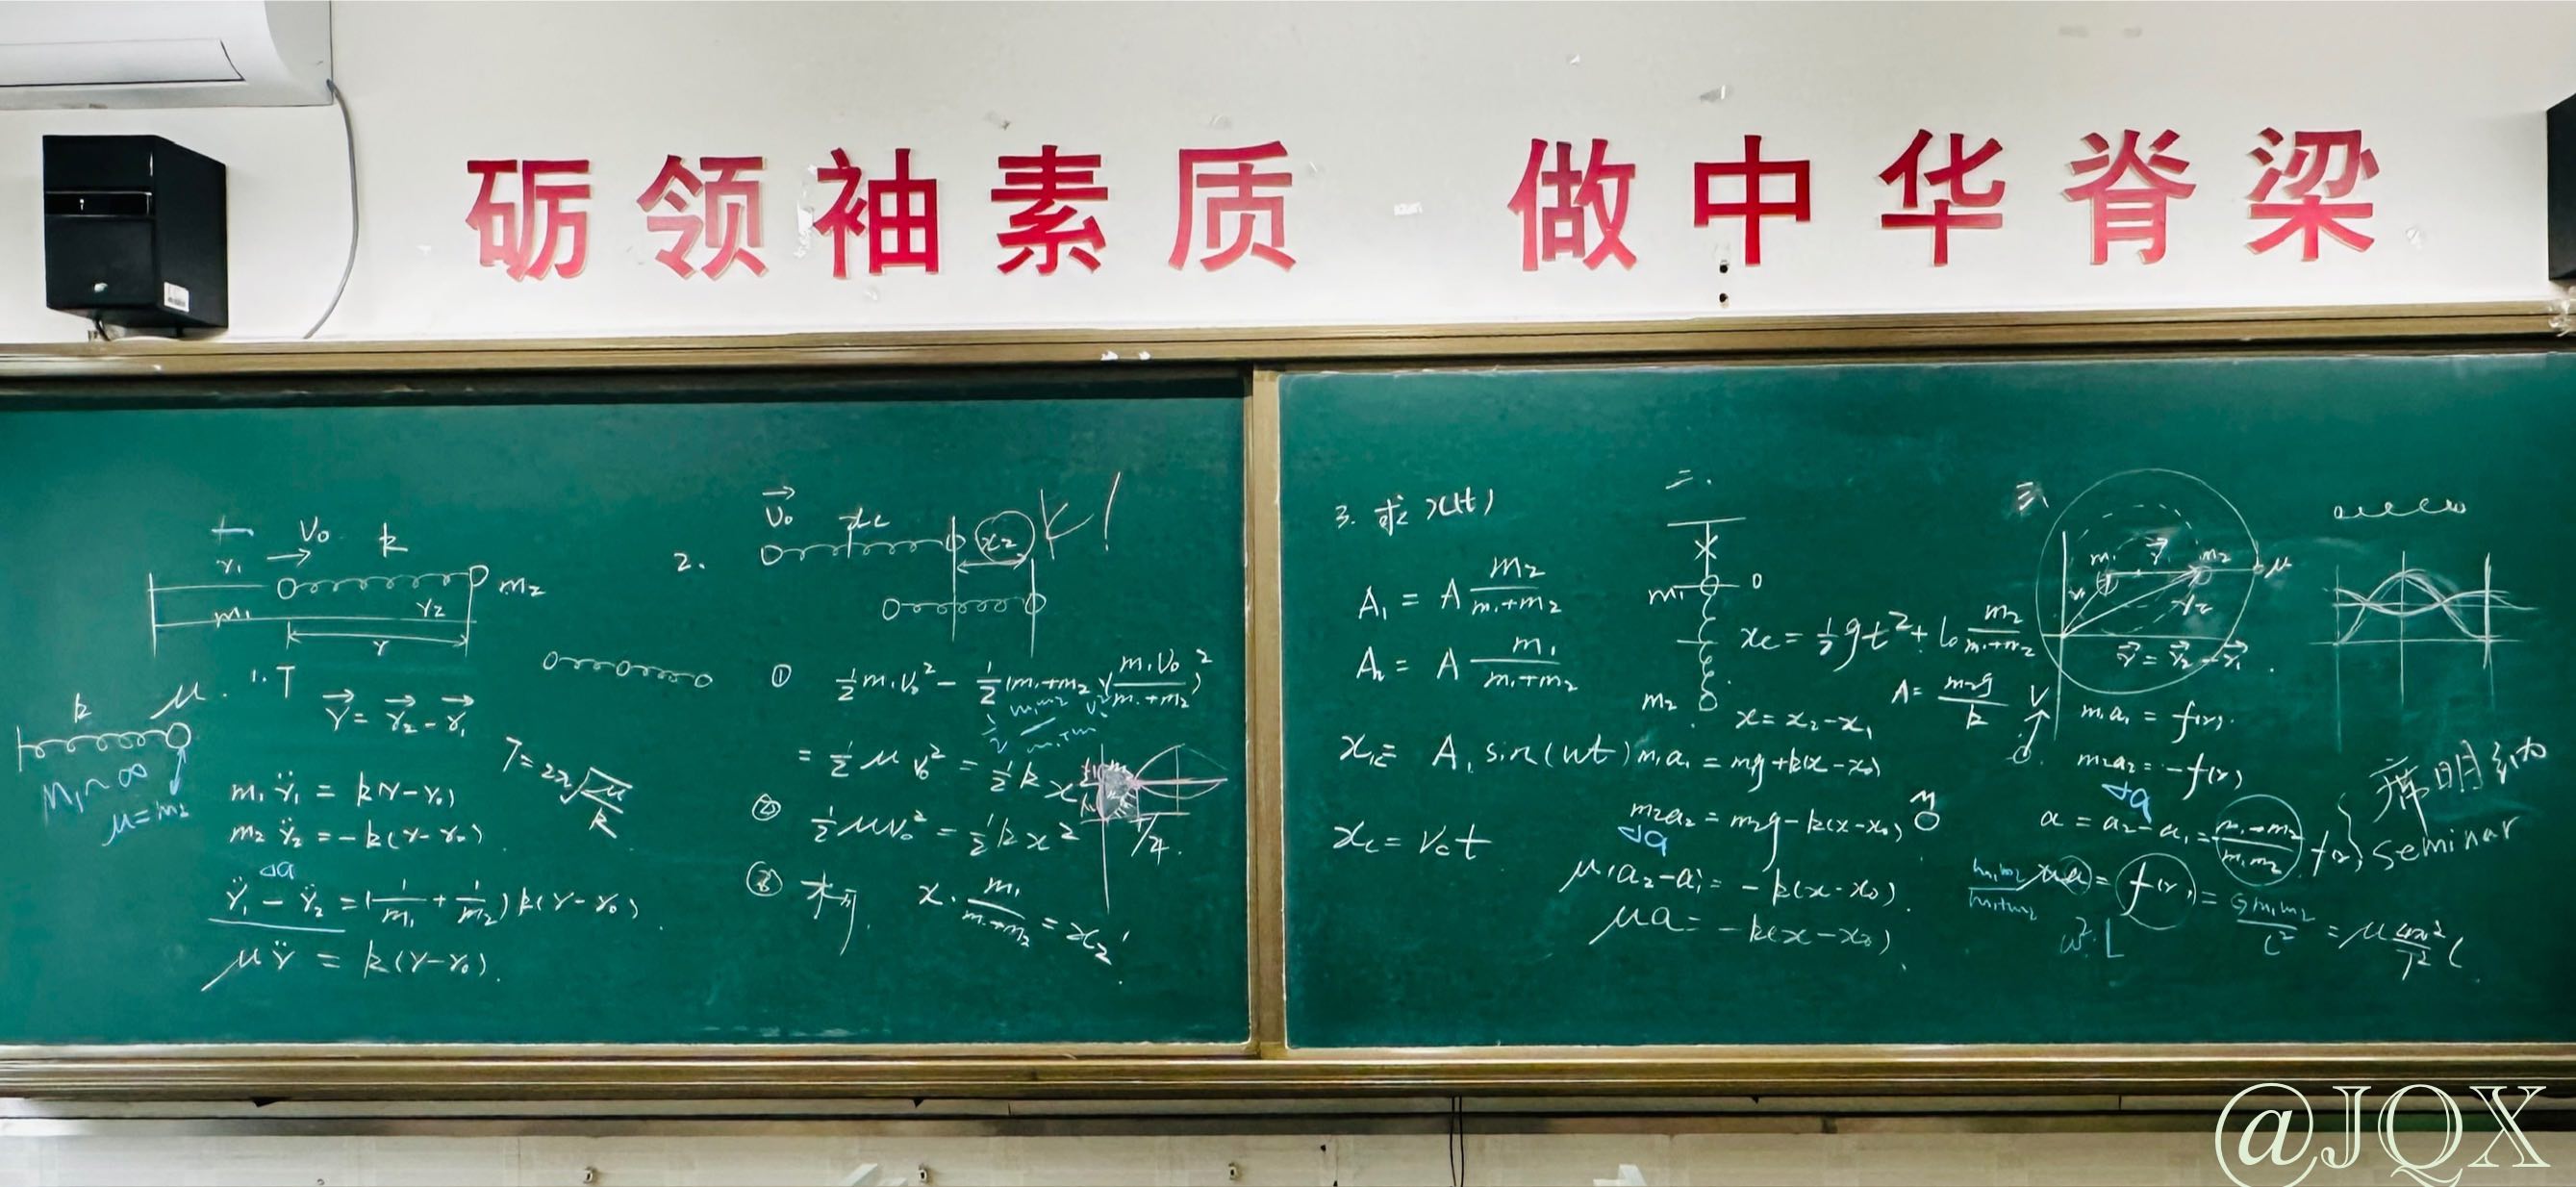 砺领袖素质 做中华脊梁
V₀ k
r₁
m₂
m₁ r₂
r
1. T
k μ
r⃗ = r⃗₂ - r⃗₁
M₁~∞
μ=m₂
m₁r̈₁ = k(r-r₀)
m₂r̈₂ = -k(r-r₀)
r̈₁ - r̈₂ = (1/m₁ + 1/m₂)k(r-r₀)
μr̈ = k(r-r₀)
T=2π√(μ/k)
2.
V⃗₀ xc x₂ K!
① ½m₁V₀² - ½(m₁+m₂)(m₁V₀/(m₁+m₂))²
= ½μV₀² = ½k x²
② ½μV₀² = ½kx² T/4
③ x · m₁/(m₁+m₂) = x₂'
3. 求 x(t)
A₁ = A m₂/(m₁+m₂)
A₂ = A m₁/(m₁+m₂)
A₁ sin(ωt)
xc = Vc t
二.
m₁ 0
m₂
xc = ½gt² + l₀ m₂/(m₁+m₂)
x = x₂-x₁
A = m₂g/k
m₁a₁ = mg+k(x-x₀)
m₂a₂ = m₂g-k(x-x₀)
μ(a₂-a₁) = -k(x-x₀)
μa = -k(x-x₀)
三.
m₁ r⃗ m₂ μ
r₁ r₂
r⃗ = r⃗₂ - r⃗₁
V
m₁a₁ = f(r)
m₂a₂ = -f(r)
a = a₂-a₁ = (m₁+m₂)/(m₁m₂) f(r)
m₁m₂/(m₁+m₂) μa = f(r) = Gm₁m₂/L² = μ 4π²/T² L
ω²L
席明纳
seminar
@JQX